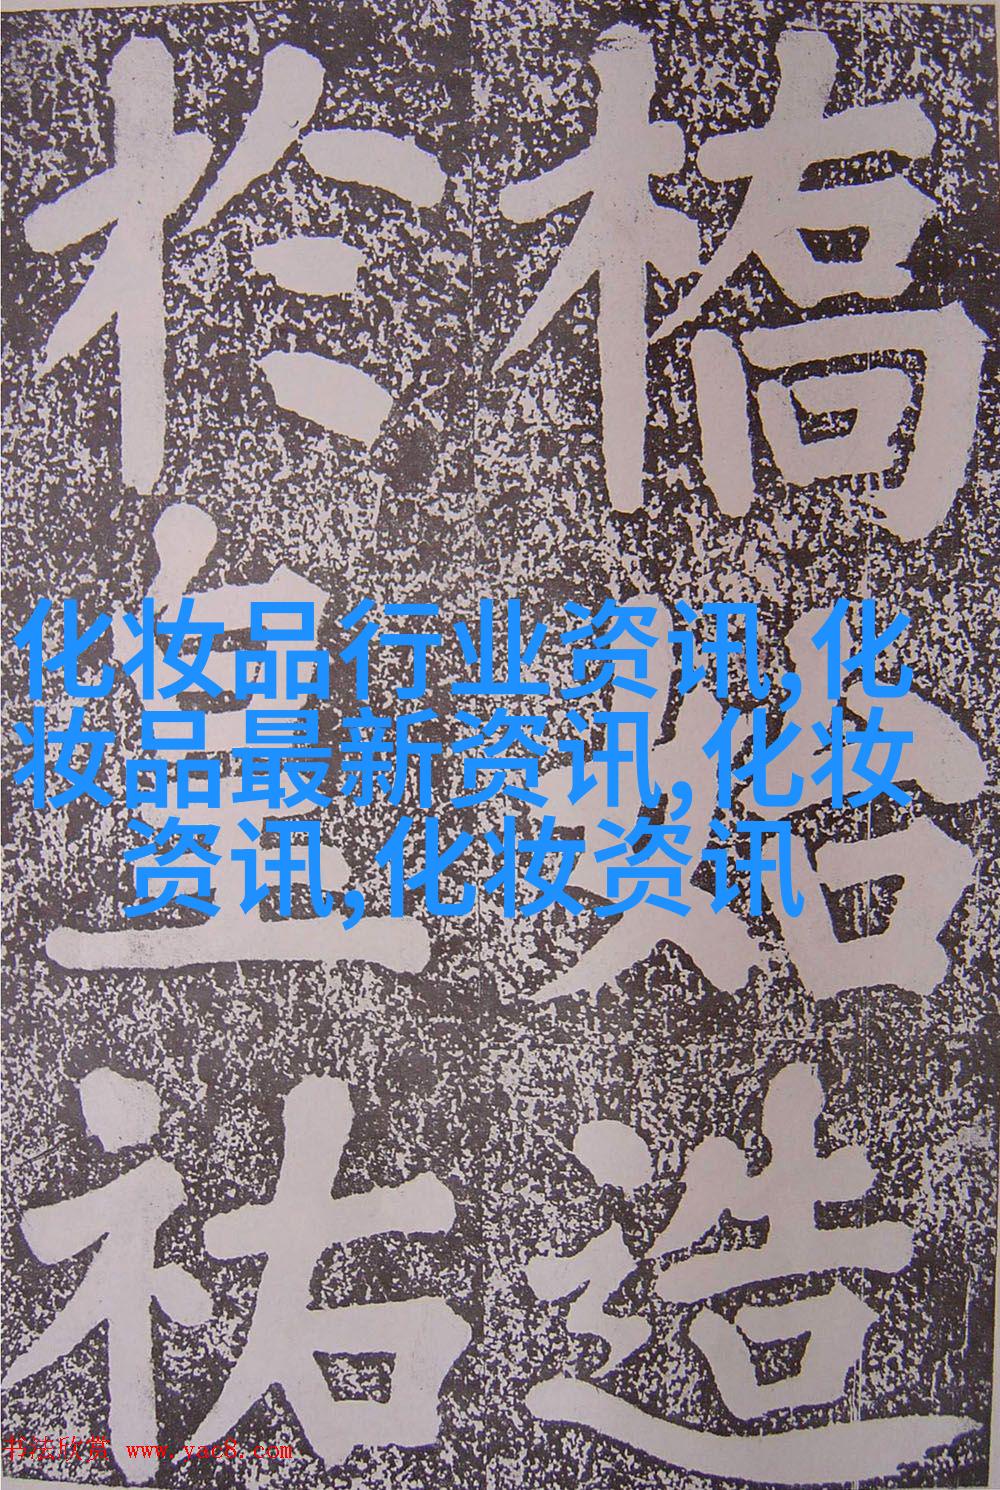 橋始造
於皇祐
化妆品行业资讯,化
妆品最新资讯,化妆
资讯,化妆资讯
书法欣赏 www.yac8.com